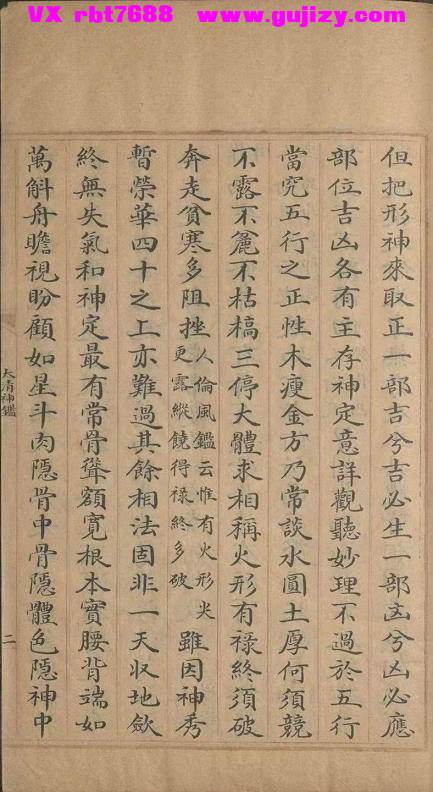 VX rbt7688 www.gujizy.com
但把形神來取正一部吉兮吉必生一部凶兮凶必應
部位吉凶各有主存神定意詳觀聽妙理不過於五行
當究五行之正性木瘦金方乃常談水圓土厚何須競
不露不麄不枯槁三停大體求相稱火形有祿終須破
奔走貧寒多阻挫人倫風鑑云惟有火形尖更露縱饒得祿終多破雖因神秀
暫榮華四十之上亦難過其餘相法固非一天収地歛
終無失氣和神定最有常骨聳額寛根本實腰背端如
萬斛舟瞻視盼顧如星斗肉隱骨中骨隱體色隱神中
太清神鑑
二